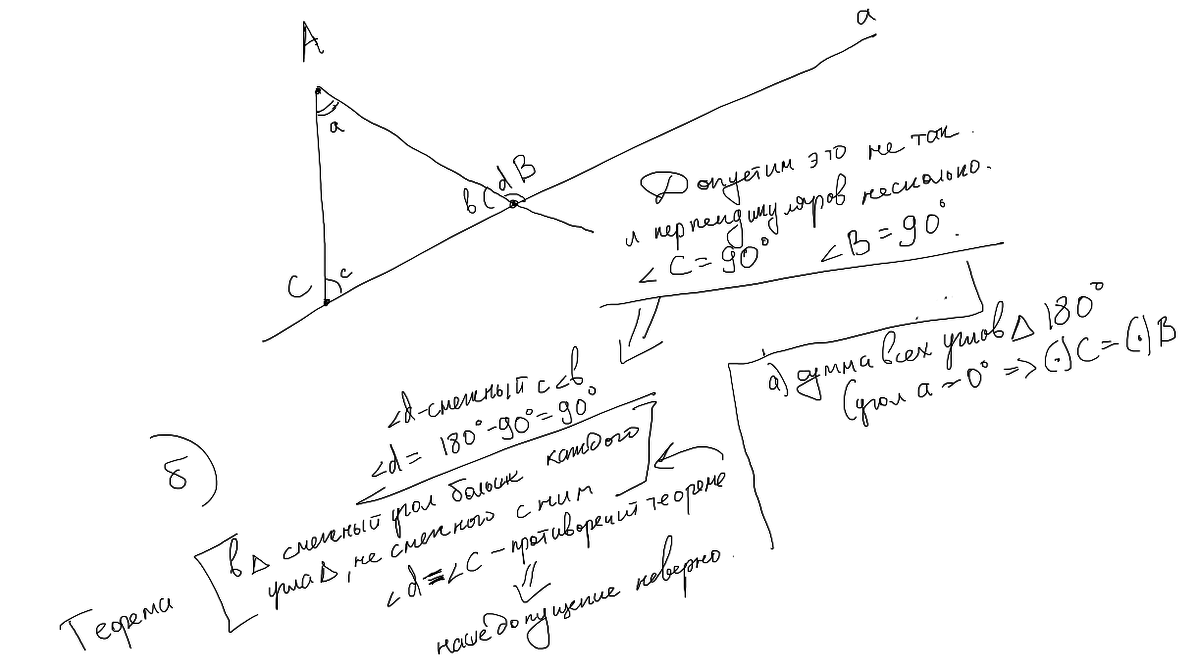 A
a
a
b
d B
C
c
Допустим это не так
и перпендикуляров несколько.
∠C = 90° ∠B = 90°.
∠d - смежный с ∠b
∠d = 180° - 90° = 90°
а) сумма всех углов Δ 180°
(угол a ~ 0° => (·) C = (·) B
б)
Теорема
в Δ смежный угол больше каждого
угла Δ, не смежного с ним
∠d = ∠C - противоречит теореме
наше допущение неверно.